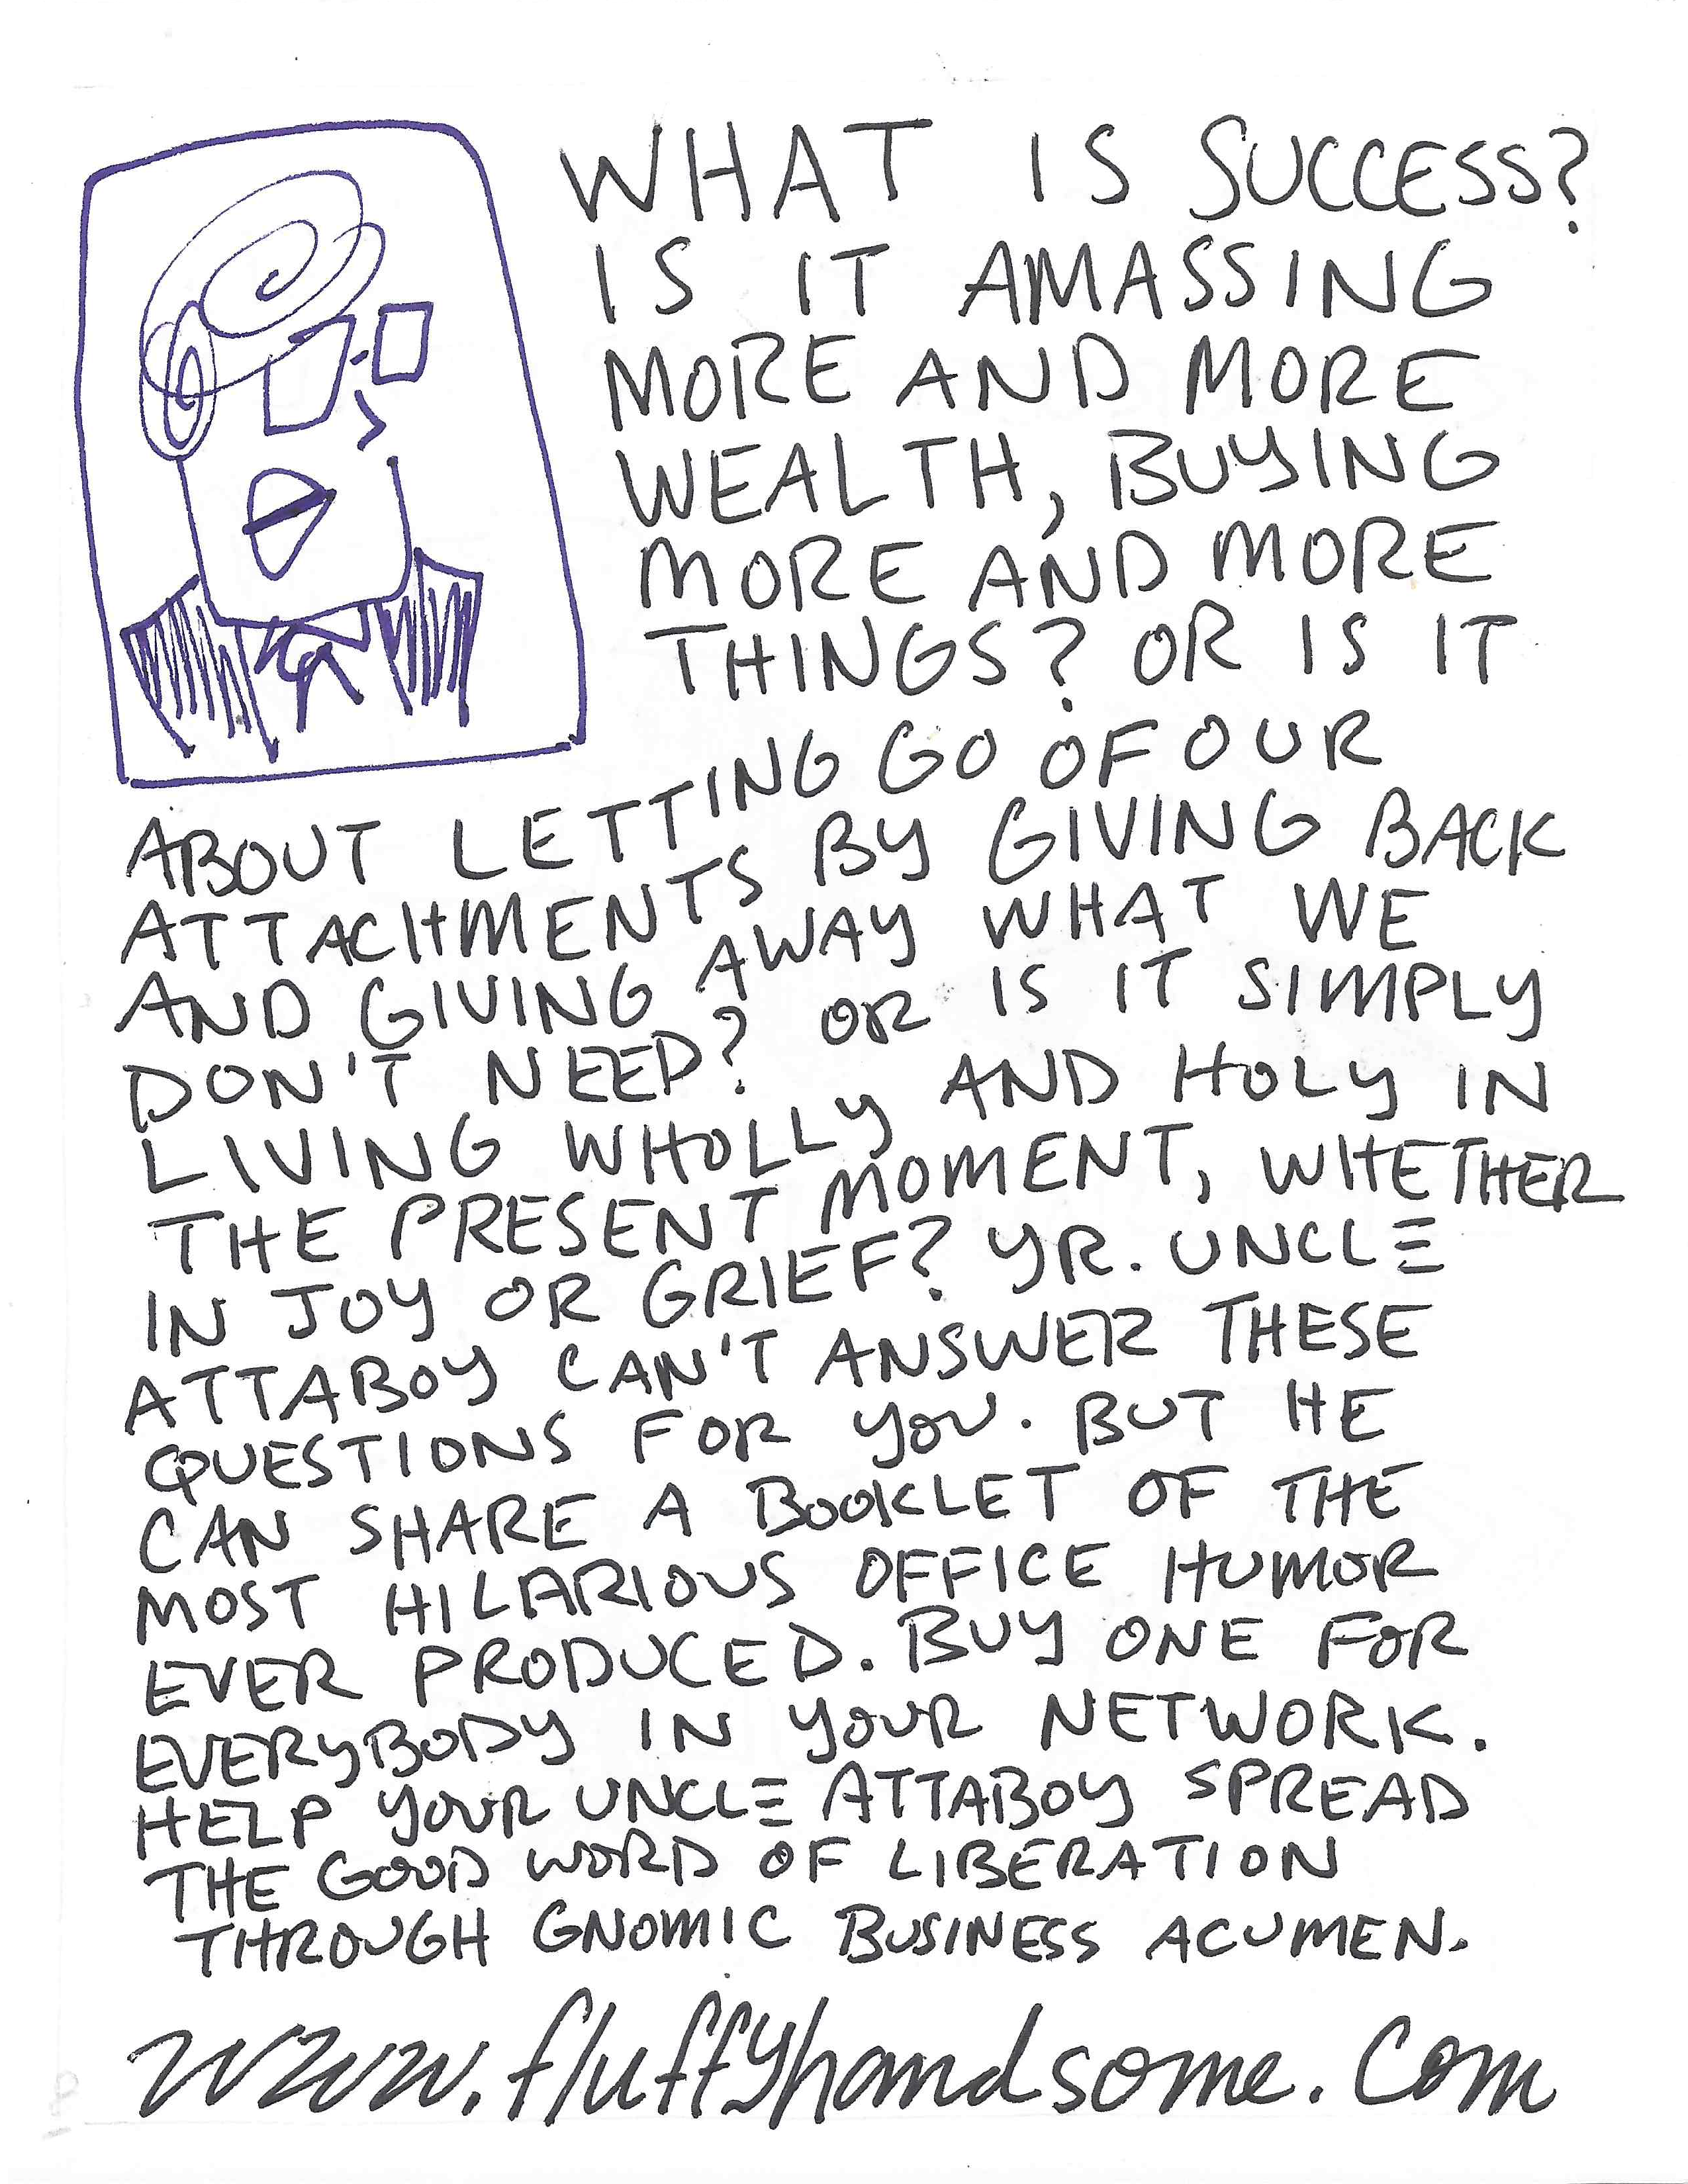 WHAT IS SUCCESS?
IS IT AMASSING
MORE AND MORE
WEALTH, BUYING
MORE AND MORE
THINGS? OR IS IT
ABOUT LETTING GO OF OUR
ATTACHMENTS BY GIVING BACK
AND GIVING AWAY WHAT WE
DON'T NEED? OR IS IT SIMPLY
LIVING WHOLLY AND HOLY IN
THE PRESENT MOMENT, WHETHER
IN JOY OR GRIEF? YR. UNCLE
ATTABOY CAN'T ANSWER THESE
QUESTIONS FOR YOU. BUT HE
CAN SHARE A BOOKLET OF THE
MOST HILARIOUS OFFICE HUMOR
EVER PRODUCED. BUY ONE FOR
EVERYBODY IN YOUR NETWORK.
HELP YOUR UNCLE ATTABOY SPREAD
THE GOOD WORD OF LIBERATION
THROUGH GNOMIC BUSINESS ACUMEN.
www.fluffyhandsome.com